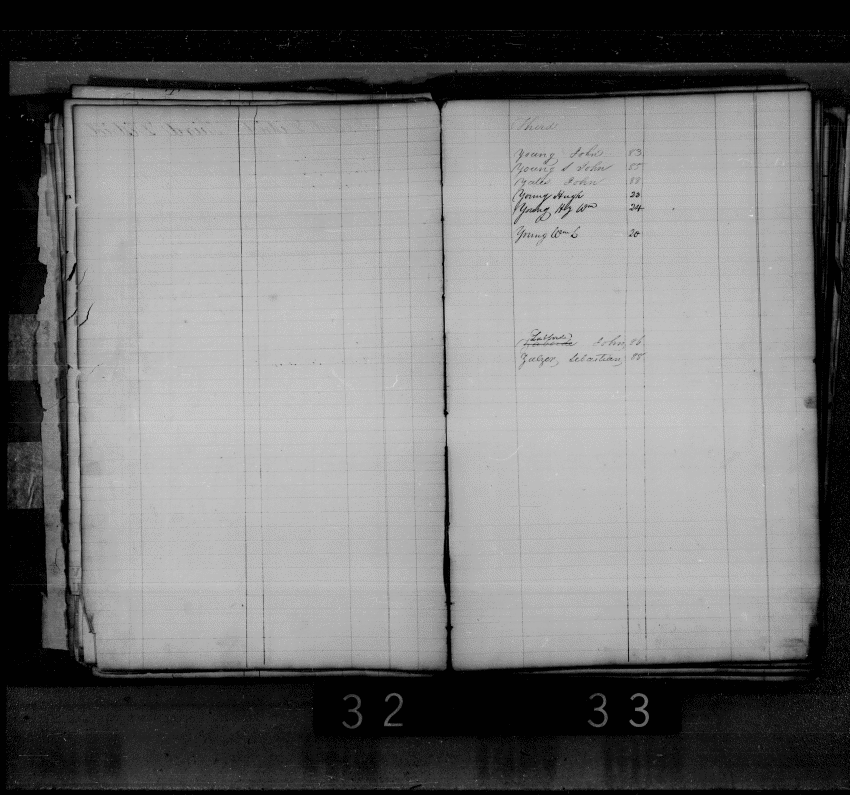 Third
Young John 83
Young S John 85
Yates John 88
Young Hugh 23
Young Hy Wm 24
Young Wm L 20
John, 86
Zalzer, Sebastian, 88
32
33